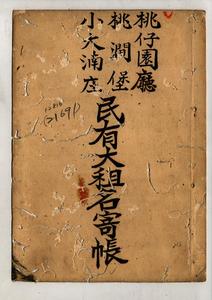 桃仔園廳
桃澗堡
小大湳庄
民有大租名寄帳